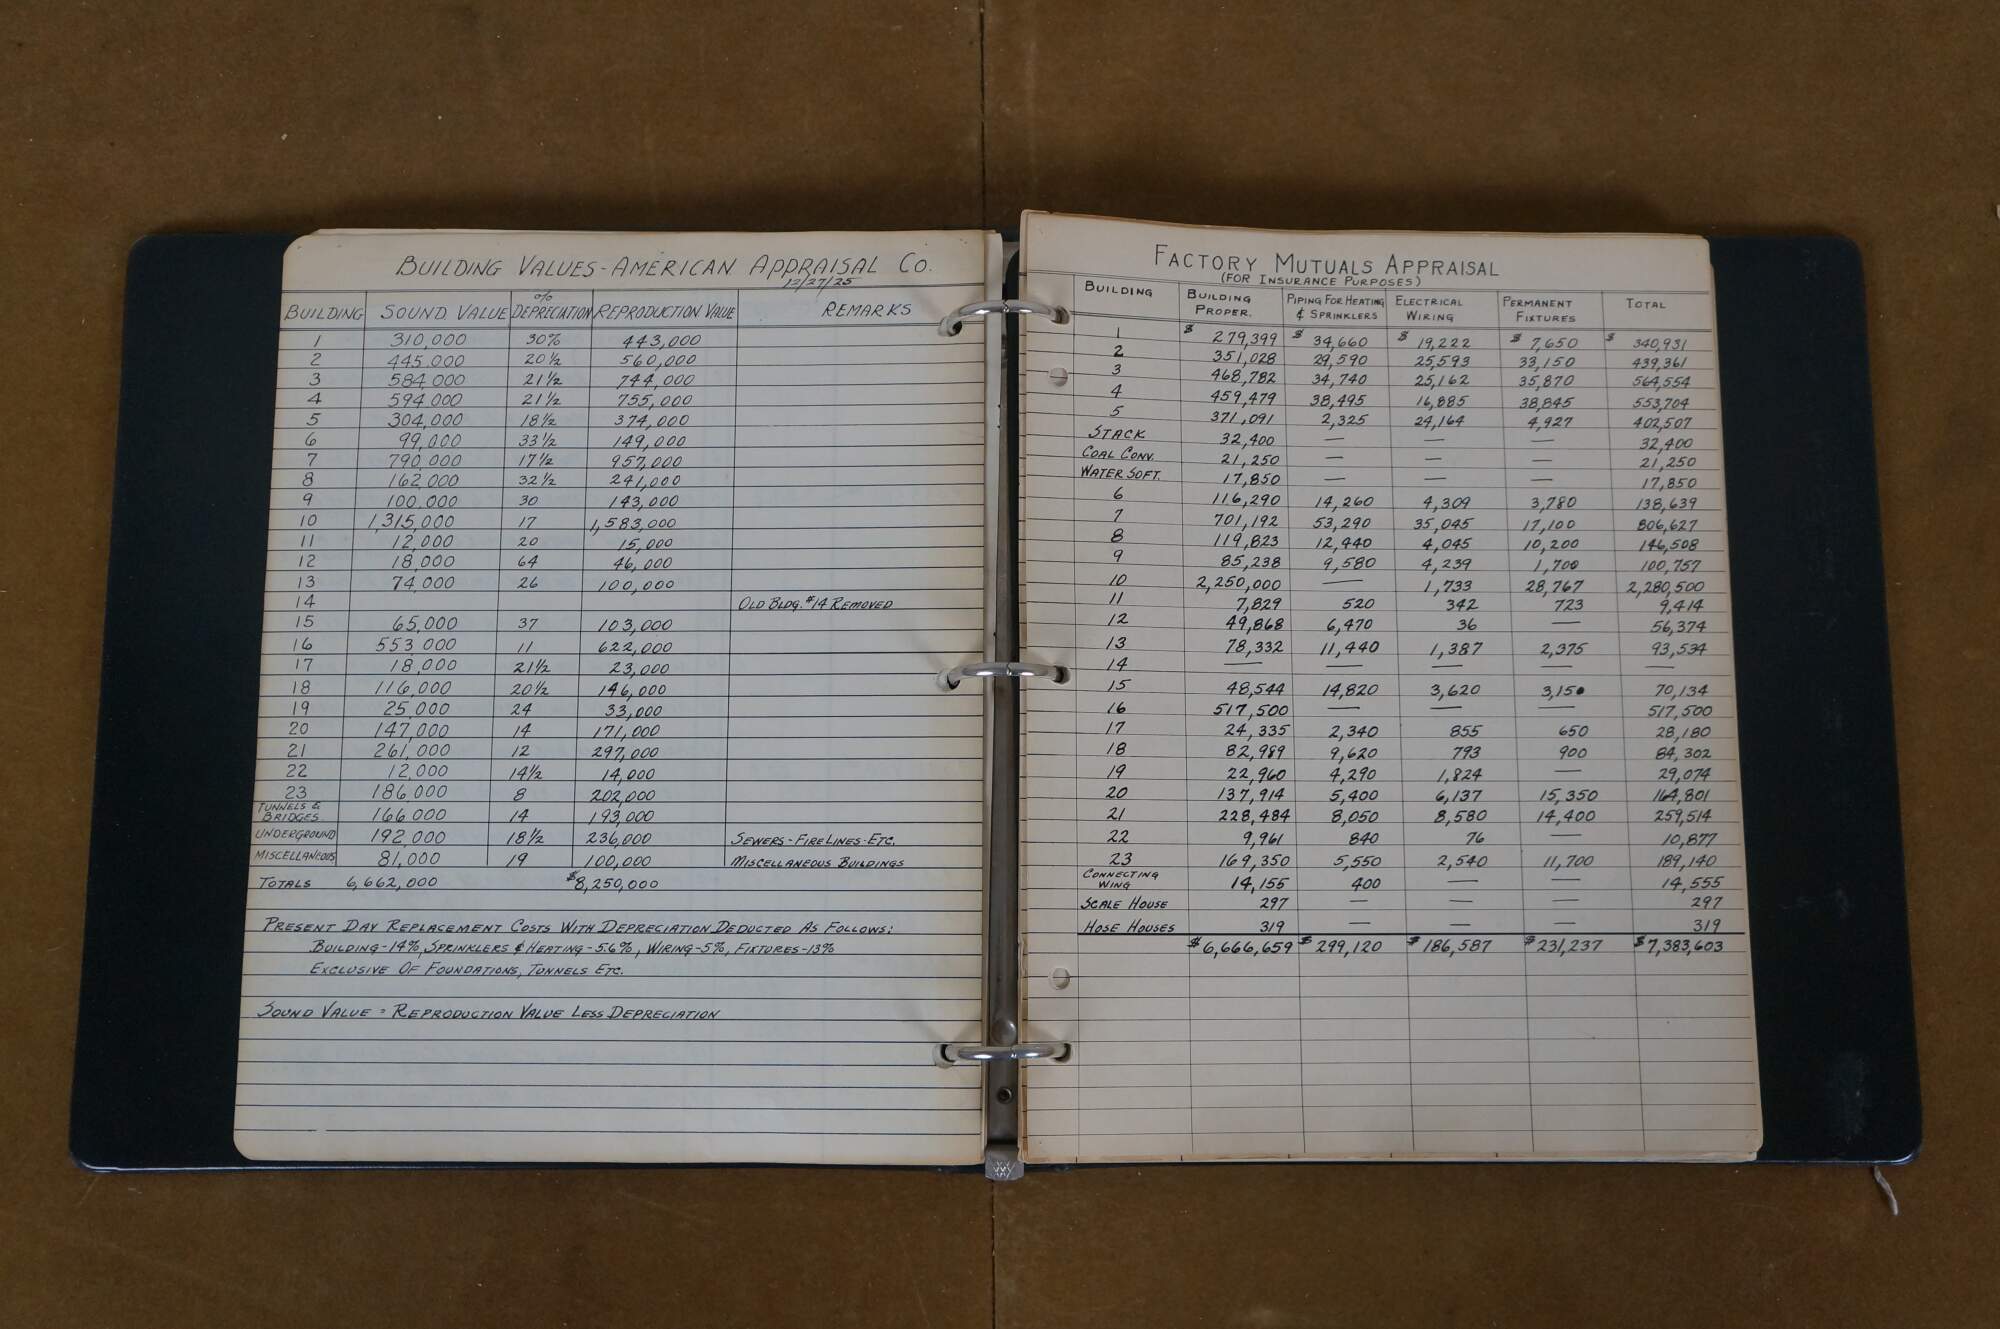 BUILDING VALUES-AMERICAN APPRAISAL CO.
12/27/25
BUILDING SOUND VALUE % DEPRECIATION REPRODUCTION VALUE REMARKS
1 310,000 30% 443,000
2 445,000 20½ 560,000
3 584,000 21½ 744,000
4 594,000 21½ 755,000
5 304,000 18½ 374,000
6 99,000 33½ 149,000
7 790,000 17½ 957,000
8 162,000 32½ 241,000
9 100,000 30 143,000
10 1,315,000 17 1,583,000
11 12,000 20 15,000
12 18,000 64 46,000
13 74,000 26 100,000
14 OLD BLDG. #14 REMOVED
15 65,000 37 103,000
16 553,000 11 622,000
17 18,000 21½ 23,000
18 116,000 20½ 146,000
19 25,000 24 33,000
20 147,000 14 171,000
21 261,000 12 297,000
22 12,000 14½ 14,000
23 186,000 8 202,000
TUNNELS & BRIDGES 166,000 14 193,000
UNDERGROUND 192,000 18½ 236,000 SEWERS-FIRE LINES-ETC.
MISCELLANEOUS 81,000 19 100,000 MISCELLANEOUS BUILDINGS
TOTALS 6,662,000 $8,250,000
PRESENT DAY REPLACEMENT COSTS WITH DEPRECIATION DEDUCTED AS FOLLOWS:
BUILDING-14%, SPRINKLERS & HEATING-5.6%, WIRING-5%, FIXTURES-13%
EXCLUSIVE OF FOUNDATIONS, TUNNELS ETC.
SOUND VALUE = REPRODUCTION VALUE LESS DEPRECIATION
FACTORY MUTUALS APPRAISAL
(FOR INSURANCE PURPOSES)
BUILDING BUILDING PROPER. PIPING FOR HEATING & SPRINKLERS ELECTRICAL WIRING PERMANENT FIXTURES TOTAL
1 $ 279,399 $ 34,660 $ 19,222 $ 7,650 $ 340,931
2 351,028 29,590 25,593 33,150 439,361
3 468,782 34,740 25,162 35,870 564,554
4 459,479 38,495 16,885 38,845 553,704
5 371,091 2,325 24,164 4,927 402,507
STACK 32,400 — — — 32,400
COAL CONV. 21,250 — — — 21,250
WATER SOFT. 17,850 — — — 17,850
6 116,290 14,260 4,309 3,780 138,639
7 701,192 53,290 35,045 17,100 806,627
8 119,823 12,440 4,045 10,200 146,508
9 85,238 9,580 4,239 1,700 100,757
10 2,250,000 — 1,733 28,767 2,280,500
11 7,829 520 342 723 9,414
12 49,868 6,470 36 — 56,374
13 78,332 11,440 1,387 2,375 93,534
14 — — — — —
15 48,544 14,820 3,620 3,150 70,134
16 517,500 — — — 517,500
17 24,335 2,340 855 650 28,180
18 82,989 9,620 793 900 84,302
19 22,960 4,290 1,824 — 29,074
20 137,914 5,400 6,137 15,350 164,801
21 228,484 8,050 8,580 14,400 259,514
22 9,961 840 76 — 10,877
23 169,350 5,550 2,540 11,700 189,140
CONNECTING WING 14,155 400 — — 14,555
SCALE HOUSE 297 — — — 297
HOSE HOUSES 319 — — — 319
$6,666,659 $299,120 $186,587 $231,237 $7,383,603